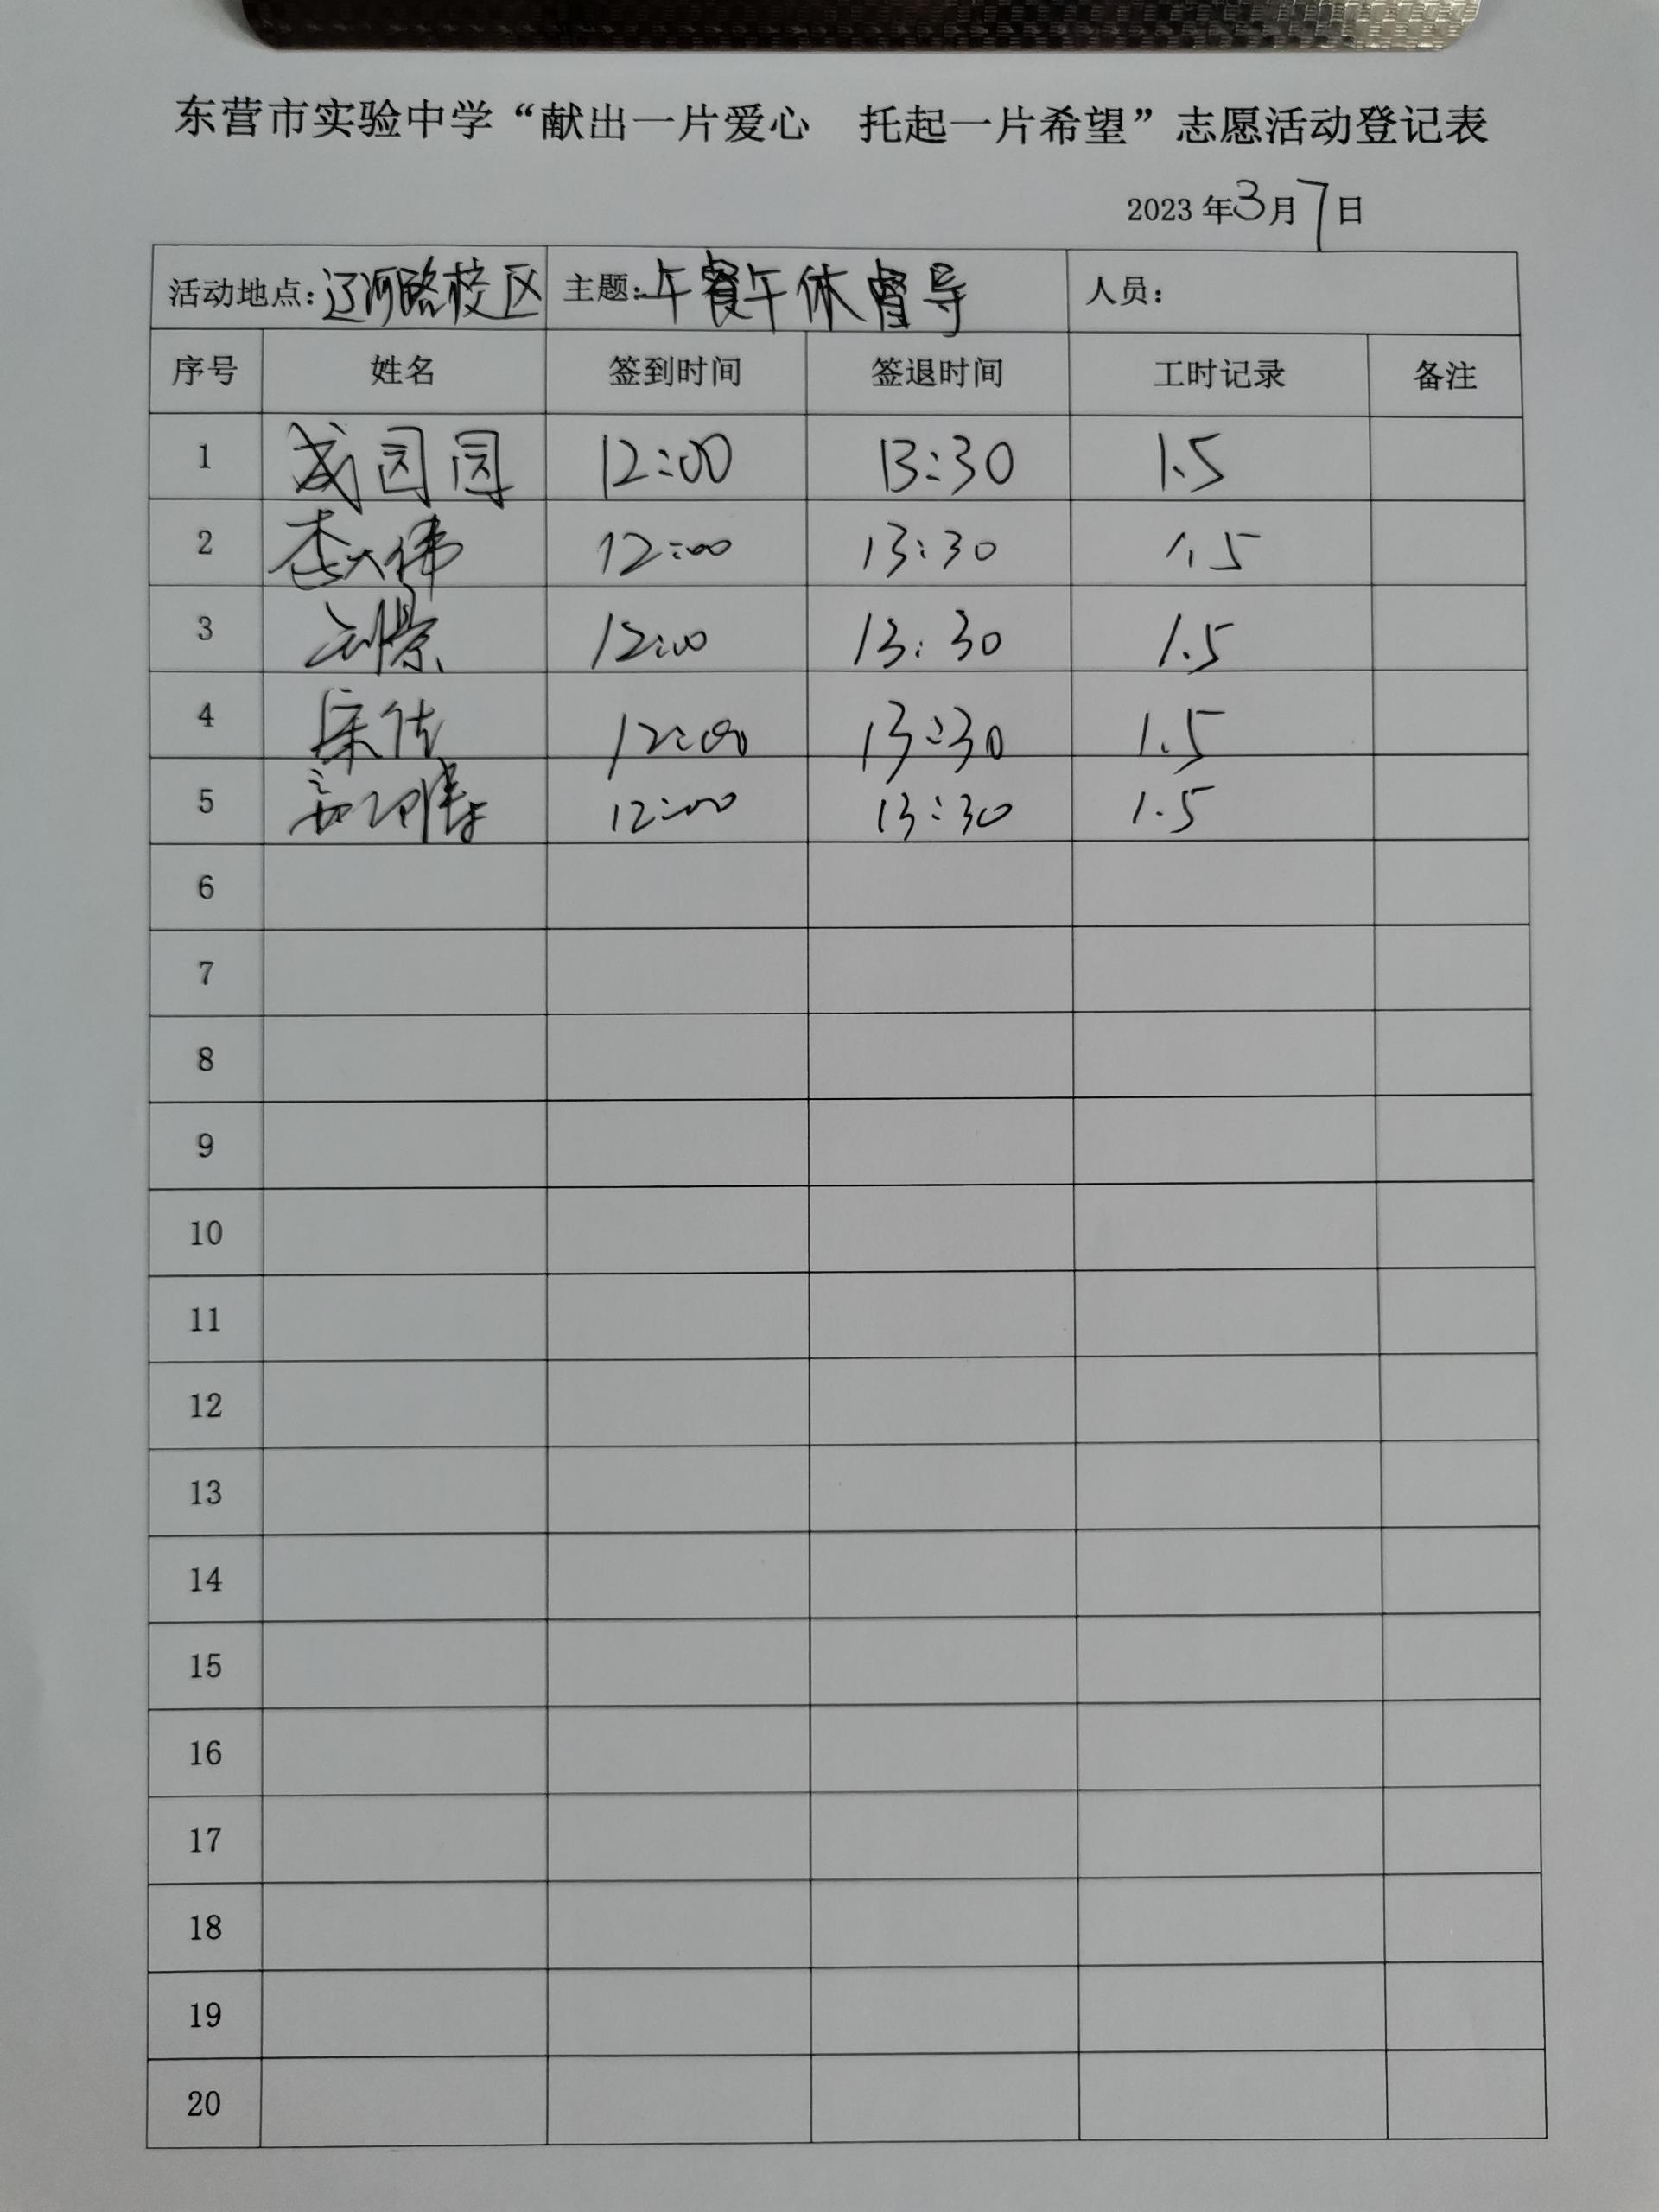 东营市实验中学“献出一片爱心 托起一片希望”志愿活动登记表
2023年3月7日
活动地点:辽河路校区 主题:午餐午休督导 人员:
序号 姓名 签到时间 签退时间 工时记录 备注
1 成园园 12:00 13:30 1.5
2 李大伟 12:00 13:30 1.5
3 刘景 12:00 13:30 1.5
4 宋佳 12:00 13:30 1.5
5 12:00 13:30 1.5
6
7
8
9
10
11
12
13
14
15
16
17
18
19
20